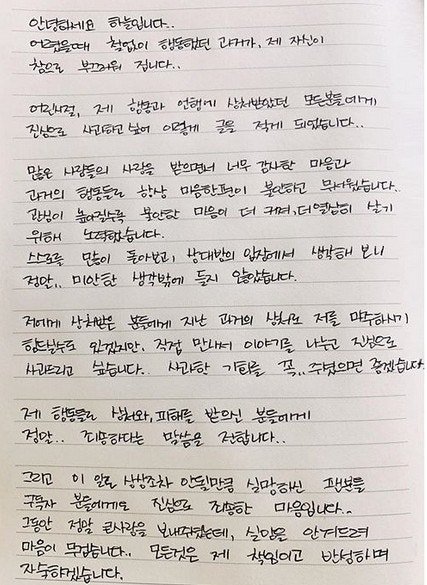 안녕하세요 하늘입니다..
어렸을때 철없이 행동했던 과거가, 제 자신이
참으로 부끄러워 집니다..
어린시절, 제 행동과 언행에 상처받았던 모든분들에게
진심으로 사과하고 싶어 이렇게 글을 적게 되었습니다..
많은 사람들의 사랑을 받으면서 너무 감사한 마음과
과거의 행동들로 항상 마음한편이 불안하고 무서웠습니다..
관심이 높아질수록 불안한 마음이 더 커져, 더열심히 살기
위해 노력했습니다.
스스로를 많이 돌아보고, 상대방의 입장에서 생각해 보니
정말.. 미안한 생각밖에 들지 않았습니다.
저에게 상처받은 분들에게 지난 과거의 상처로 저를 마주하시기
힘드실수도 있겠지만, 직접 만나서 이야기를 나누고 진심으로
사과드리고 싶습니다.. 사과할 기회를 꼭.. 주셨으면 좋겠습니다.
제 행동들로 상처와, 피해를 받으신 분들에게
정말.. 죄송하다는 말씀을 전합니다..
그리고 이 일로 상상조차 안될만큼 실망하신 팬분들
구독자 분들에게도 진심으로 죄송한 마음입니다..
그동안 정말 큰사랑을 보내주셨는데, 실망을 안겨드려
마음이 무겁습니다.. 모든것은 제 책임이고 반성하며
자숙하겠습니다.